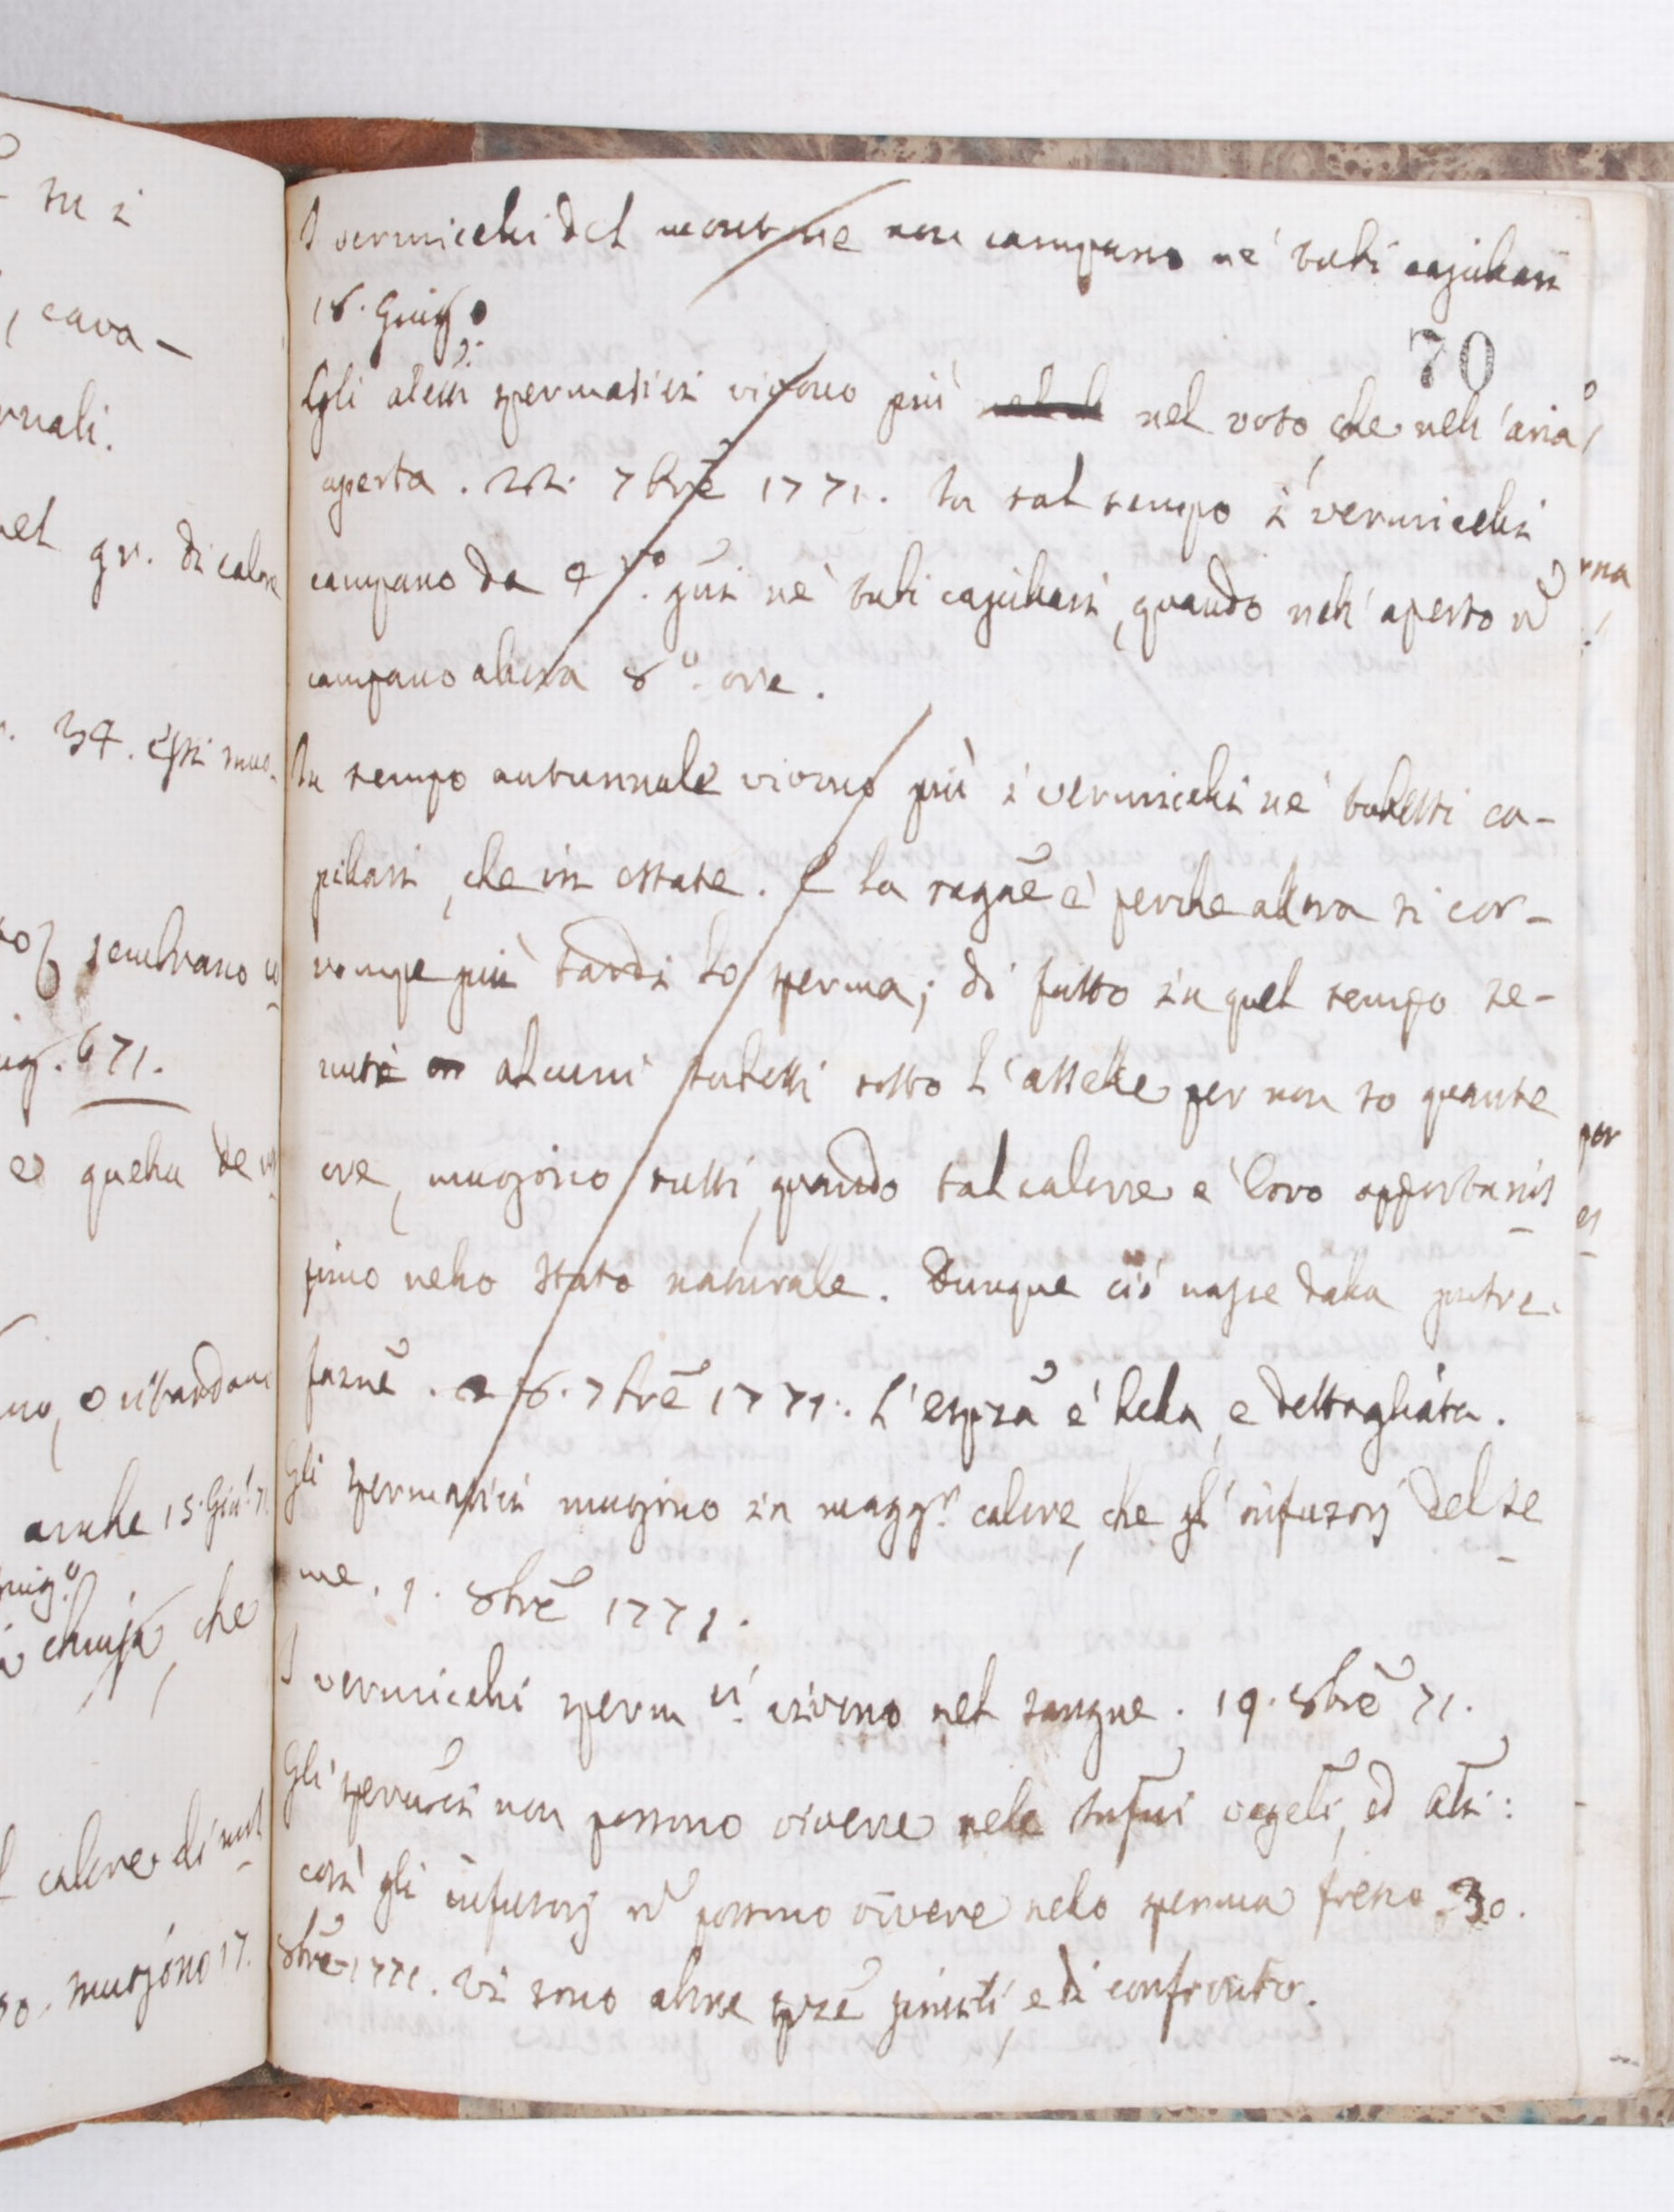 I vermicelli del montone non campano ne' tubi capillari
18. Giug.o
70
Gli altri spermatici vivono più nel voto, che nell'aria
aperta. 22. 7bre 1771. In tal tempo i vermicelli
campano da 4 gni ne' tubi capillari, quando nell'aperto n
campano allora 8 ore.
In tempo autunnale vivono più i vermicelli ne' tubetti ca-
pillari, che in estate. E la ragne è perche allora si cor-
rompe più tardi lo sperma; di fatto in quel tempo te-
nuti alcuni tubetti sotto l'ascelle per non so quante
ore, muojono tutti, quando tal calore è loro opportunis
simo nello stato naturale. Dunque ciò nasce dalla putre-
fazne. 26. 7bre 1771. L'esprza è bella, e dettagliata.
Gli spermatici muojono in maggr. calore, che gl'infusorj del se
me. 1. 8bre 1771.
I vermicelli sperm.ci vivono nel sangue. 19. 8bre 71.
Gli spermci non possono vivere nelle infni vegeli, ed ali:
così gli infusorj n possono vivere nello sperma fresco. 30.
8bre 1771. Vi sono altre sprze simili, e di confronto.
tu i
, cava-
rnali.
nel gr. di calore
34. Essi muo-
sembrano
671.
e quella de
anche 15. Giu. 71
Giug.o
che
calore di
muojono 17.
rna
per